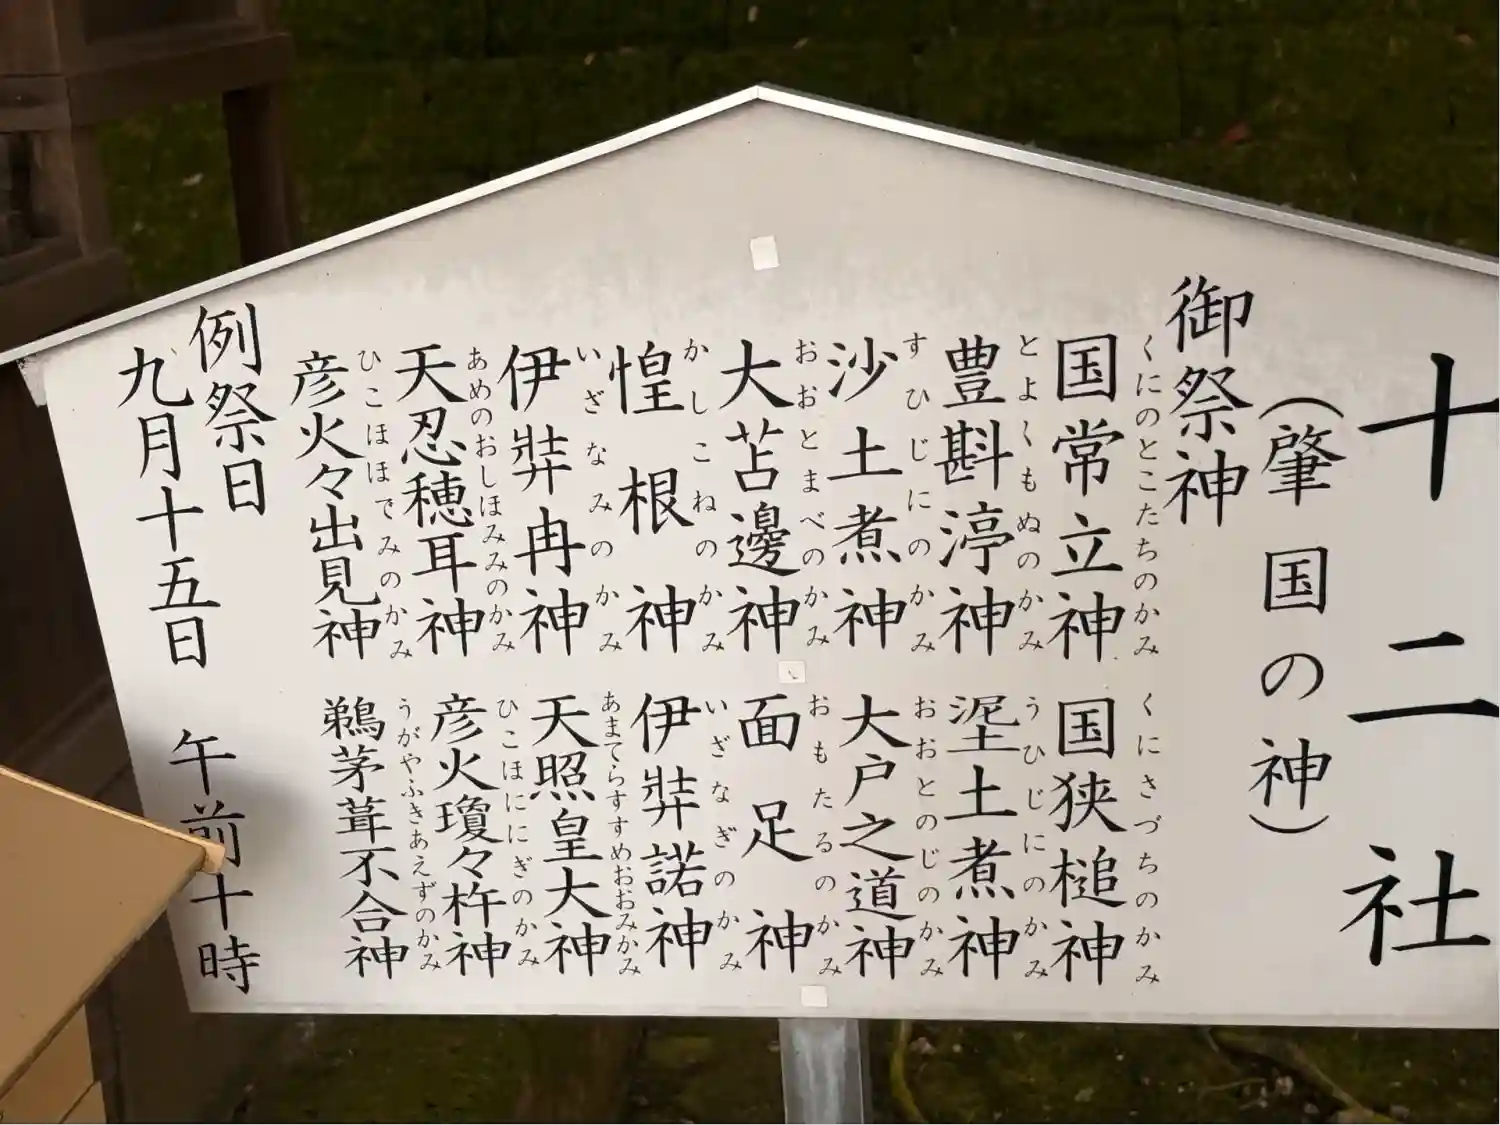 十二社
（肇国の神）
御祭神
くにのとこたちのかみ
国常立神
くにさづちのかみ
国狭槌神
とよくもぬのかみ
豊斟渟神
うひじにのかみ
埿土煮神
すひじにのかみ
沙土煮神
おおとのじのかみ
大戸之道神
おおとまべのかみ
大苫邊神
おもたるのかみ
面足神
かしこねのかみ
惶根神
いざなぎのかみ
伊弉諾神
いざなみのかみ
伊弉冉神
あまてらすすめおおみかみ
天照皇大神
あめのおしほみみのかみ
天忍穂耳神
ひこほににぎのかみ
彦火瓊々杵神
ひこほほでみのかみ
彦火々出見神
うがやふきあえずのかみ
鵜茅葺不合神
例祭日
九月十五日 午前十時